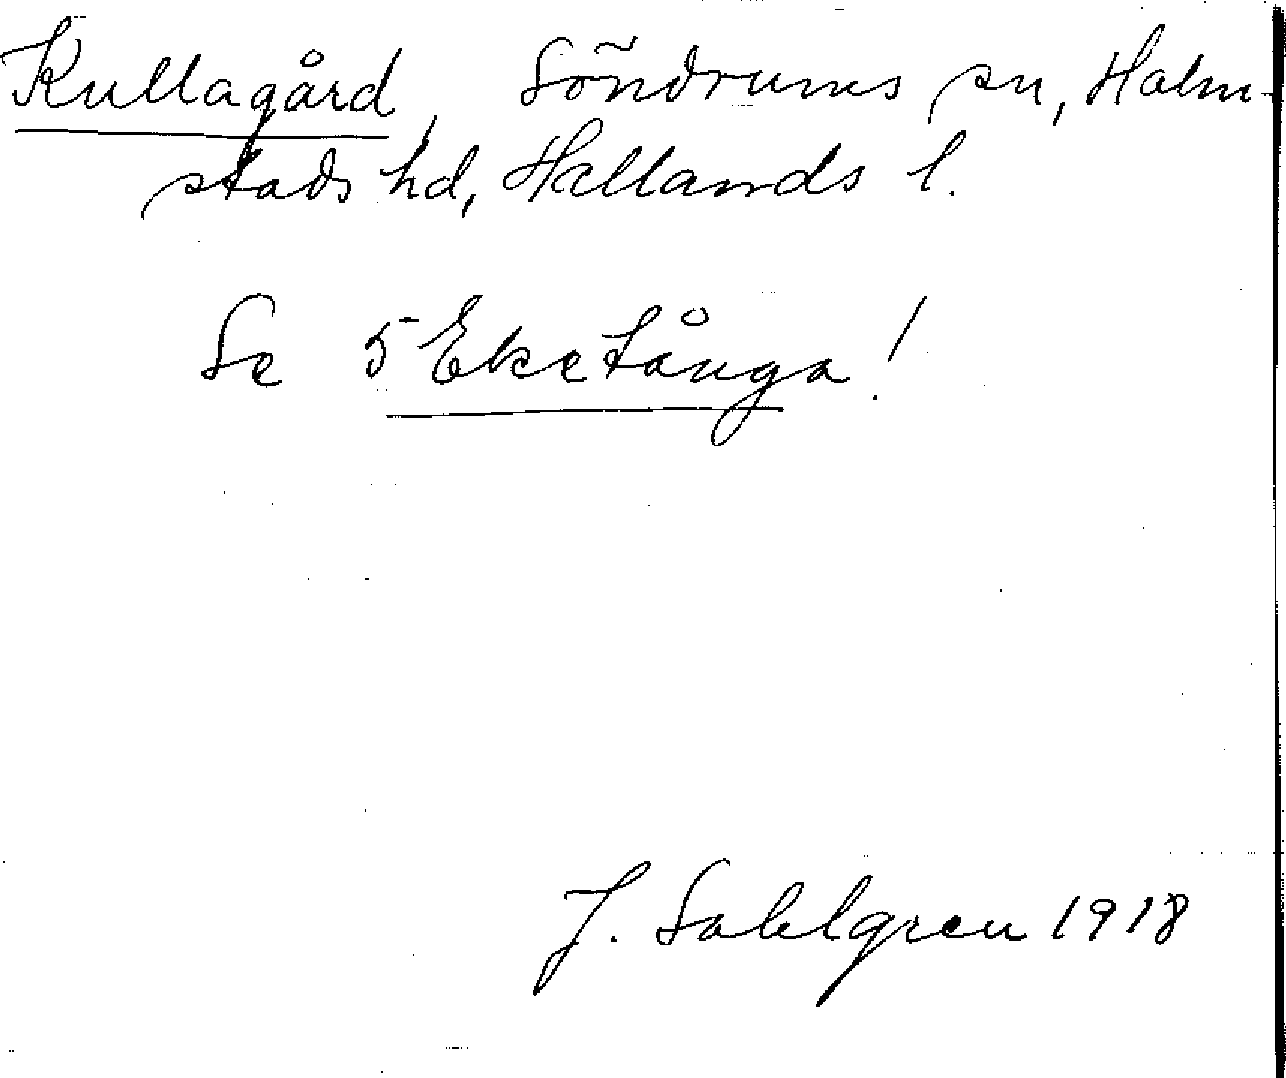 Kullagård, Söndrums sn, Halm-
stads hd, Hallands l.
Se 5 Eketånga!
J. Sahlgren 1918